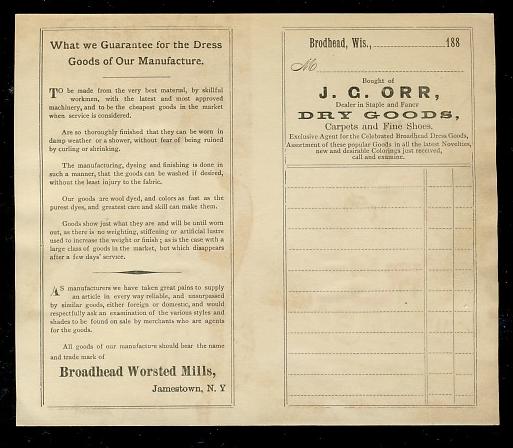 What we Guarantee for the Dress
Goods of Our Manufacture.
TO be made from the very best material, by skillful
workmen, with the latest and most approved
machinery, and to be the cheapest goods in the market
when service is considered.
Are so thoroughly finished that they can be worn in
damp weather or a shower, without fear of being ruined
by curling or shrinking.
The manufacturing, dyeing and finishing is done in
such a manner, that the goods can be washed if desired,
without the least injury to the fabric.
Our goods are wool dyed, and colors as fast as the
purest dyes, and greatest care and skill can make them.
Goods show just what they are and will be until worn
out, as there is no weighting, stiffening or artificial lustre
used to increase the weight or finish; as is the case with a
large class of goods in the market, but which disappears
after a few days' service.
AS manufacturers we have taken great pains to supply
an article in every way reliable, and unsurpassed
by similar goods, either foreign or domestic, and would
respectfully ask an examination of the various styles and
shades to be found on sale by merchants who are agents
for the goods.
All goods of our manufacture should bear the name
and trade mark of
Broadhead Worsted Mills,
Jamestown, N. Y
Brodhead, Wis., 188
M
Bought of
J. C. ORR,
Dealer in Staple and Fancy
DRY GOODS,
Carpets and Fine Shoes.
Exclusive Agent for the Celebrated Broadhead Dress Goods,
Assortment of these popular Goods in all the latest Novelties,
new and desirable Colorings just received,
call and examine.